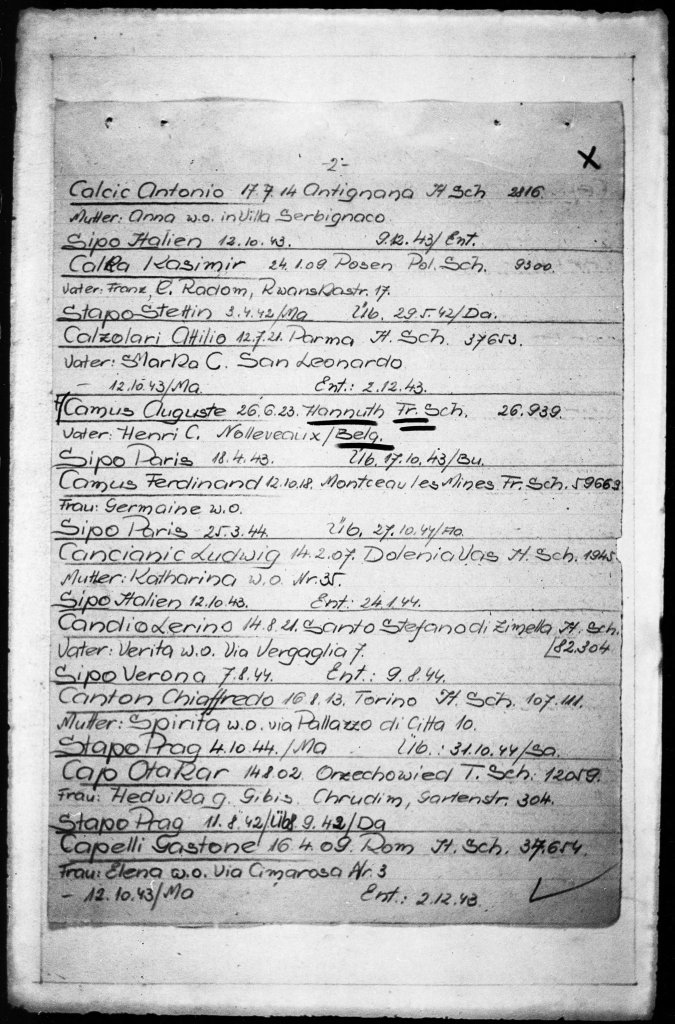 -2-
X
Calcic Antonio 17.7.14 Antignana It. Sch 2816.
Mutter: Anna w.o. in Villa Serbignaco
Sipo Italien 12.10.43. 9.12.43/Ent.
Calka Kasimir 24.1.09 Posen Pol. Sch. 9300.
Vater: Franz, C. Radom, Rwanskastr. 17.
Stapo Stettin 3.4.42/Ma Üb. 29.5.42/Da.
Calzolari Attilio 12.7.21. Parma It. Sch. 37653.
Vater: Marka C. San Leonardo
- 12.10.43/Ma. Ent.: 2.12.43.
Camus Auguste 26.6.23. Hannuth Fr. Sch. 26.939.
Vater: Henri C. Nolleveaux/Belg.
Sipo Paris 18.4.43. Üb. 17.10.43/Bu.
Camus Ferdinand 12.10.18. Montceau les Mines Fr. Sch. 59663
Frau: Germaine w.o.
Sipo Paris 25.3.44. Üb. 27.10.44/
Cancianic Ludwig 14.2.07. Dolenia Vas It. Sch. 1945
Mutter: Katharina w.o. Nr. 35.
Sipo Italien 12.10.43. Ent.: 24.1.44.
Candio Lerino 14.8.21. Santo Stefano di Zimella It. Sch.
Vater: Verita w.o. Via Vergaglia 7. [82.304
Sipo Verona 7.8.44. Ent.: 9.8.44.
Canton Chiaffredo 16.8.13. Torino It. Sch. 107.111.
Mutter: Spirita w.o. via Pallazzo di Citta 10.
Stapo Prag 4.10.44./Ma Üb.: 31.10.44/Sa.
Cap Otakar 14.8.02. Orzechowied T. Sch. 12059.
Frau: Hedvika g. Gibis. Chrudim, Gartenstr. 304.
Stapo Prag 11.8.42/Üb 8.9.42/Da
Capelli Gastone 16.4.09. Rom It. Sch. 37.654.
Frau: Elena w.o. Via Cimarosa Nr. 3
- 12.10.43/Ma Ent.: 2.12.43